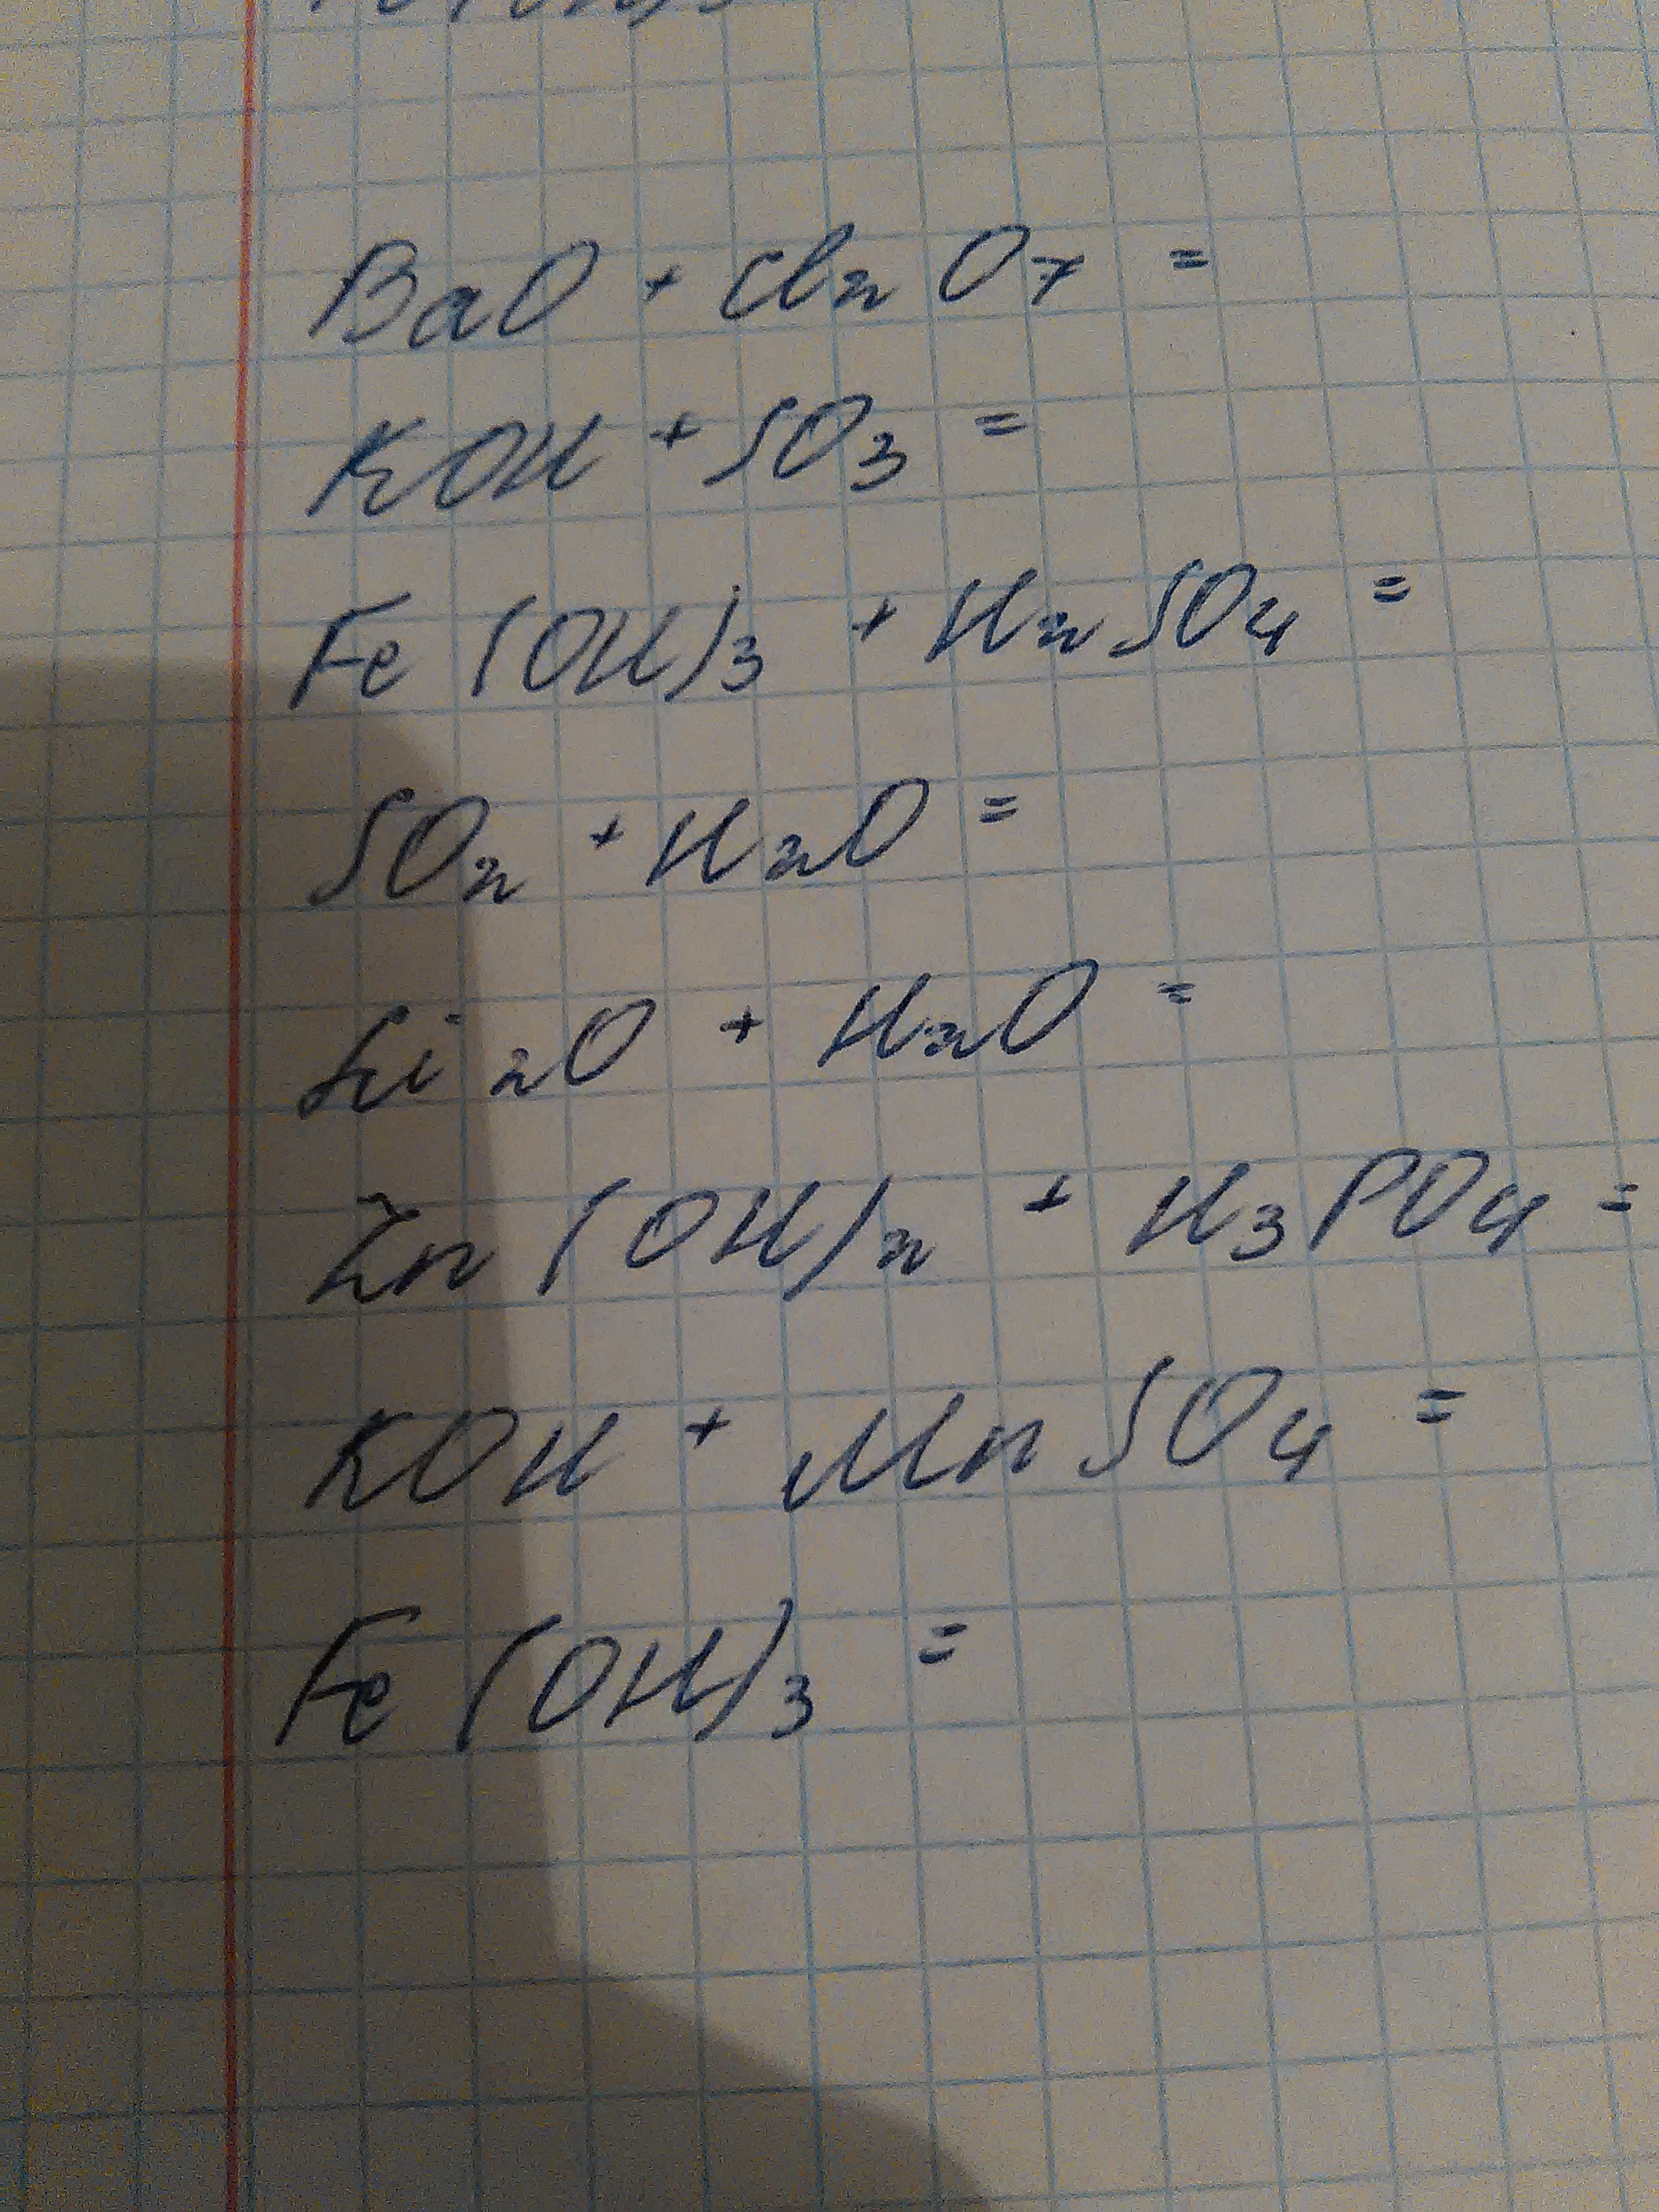 BaO + Cl₂O₇ =
KOH + SO₃ =
Fe(OH)₃ + H₂SO₄ =
SO₂ + H₂O =
Li₂O + H₂O =
Zn(OH)₂ + H₃PO₄ =
KOH + MnSO₄ =
Fe(OH)₃ =